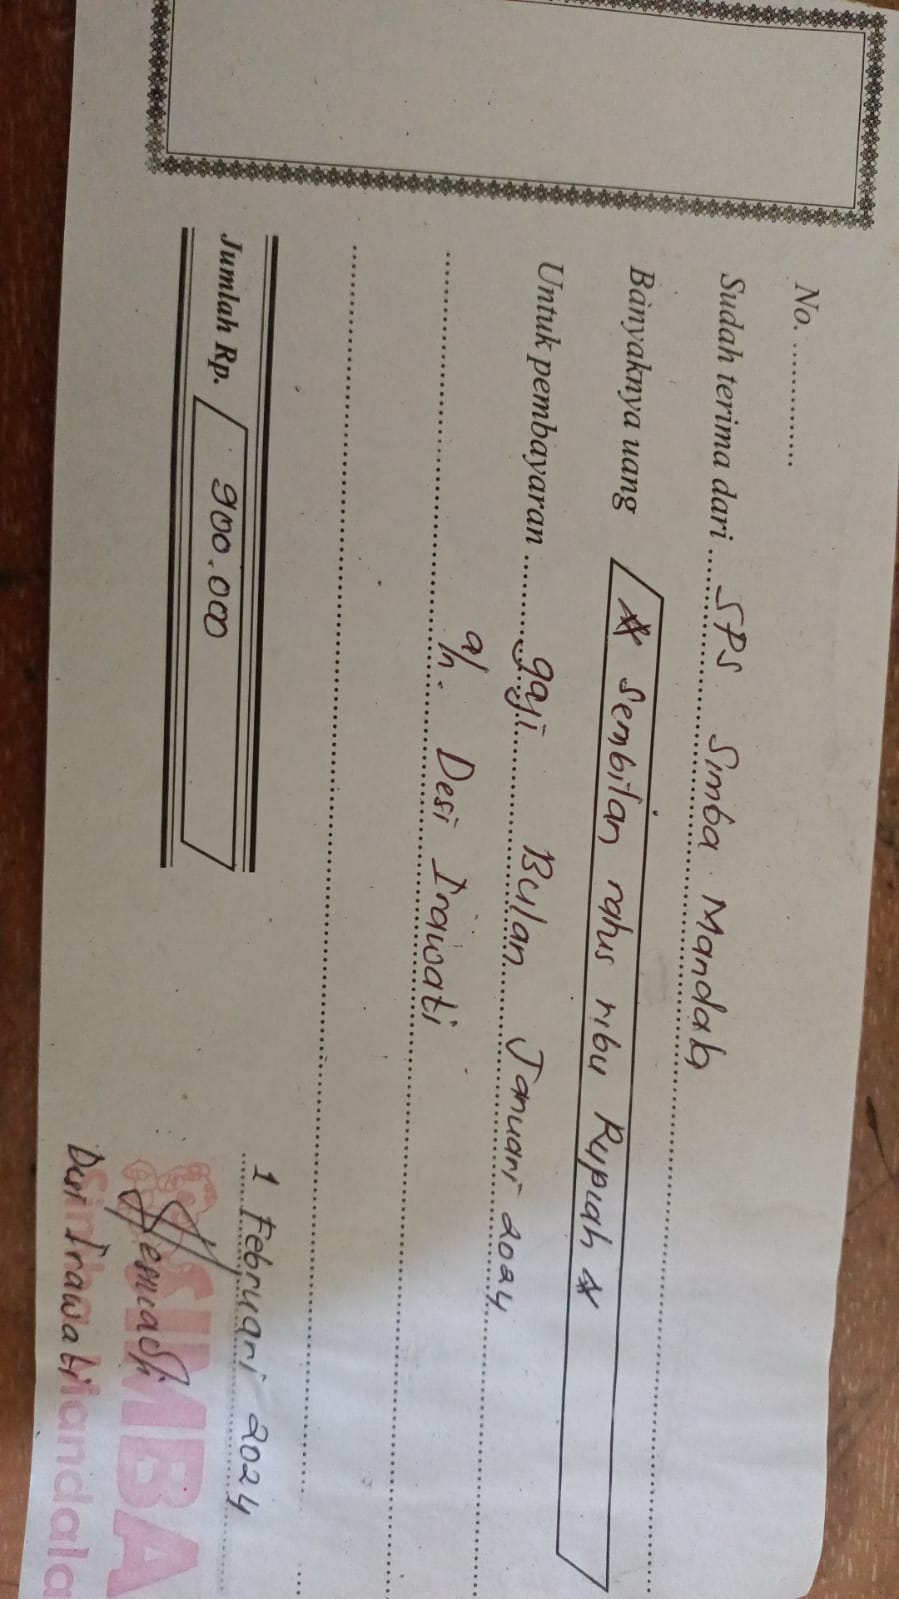 No. ............
Sudah terima dari ... SPS Simba Mandala
Banyaknya uang # Sembilan ratus ribu Rupiah #
Untuk pembayaran ... gaji Bulan Januari 2024
a/n. Desi Irawati
Jumlah Rp. 900.000
1 Februari 2024
SIMBA
Simba Mandala
Desi Irawati